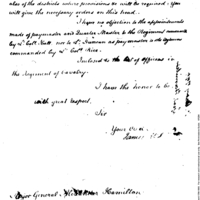 also of the districts where provisions will be required. You
will give the necessary orders on this head.
I have no objection to the appointments
made of paymaster and Quarter Master to the Regiment
by Lt Colo Hall nor to Lt as paymaster to the
commanded by Lt Colo Rice.
Inclosed is the list of officers in
the Regiment of Cavalry.
I have the honor to be
with great respect,
Sir
Your Obed.
James
Major General Hamilton